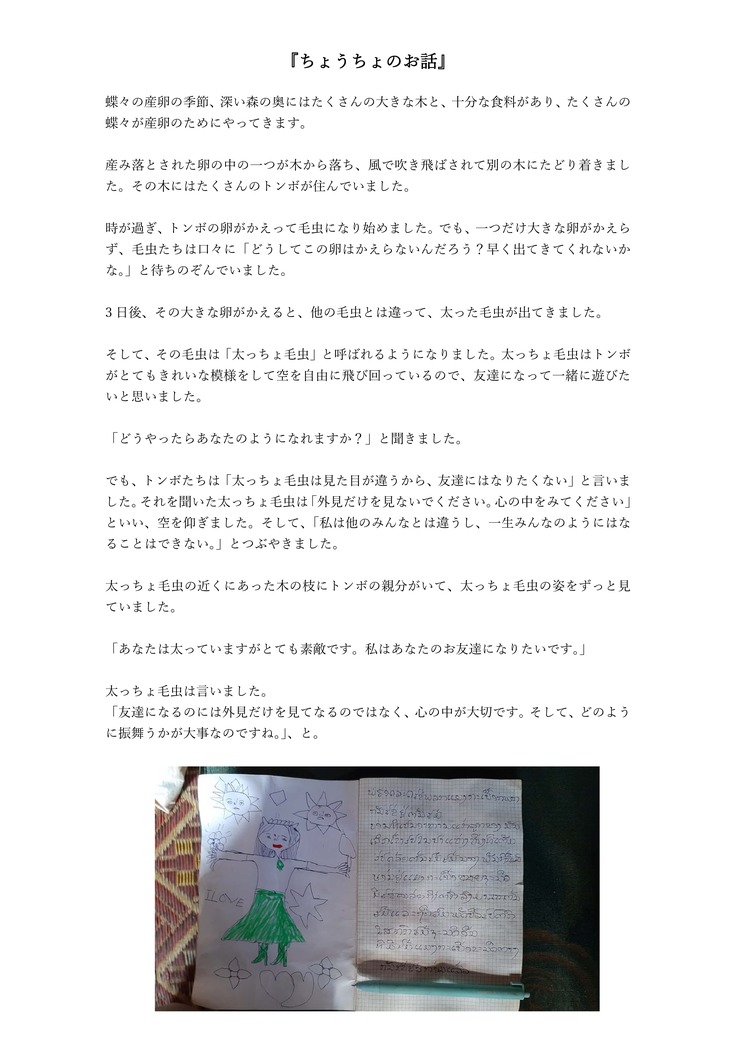 『ちょうちょのお話』
蝶々の産卵の季節、深い森の奥にはたくさんの大きな木と、十分な食料があり、たくさんの
蝶々が産卵のためにやってきます。
産み落とされた卵の中の一つが木から落ち、風で吹き飛ばされて別の木にたどり着きまし
た。その木にはたくさんのトンボが住んでいました。
時が過ぎ、トンボの卵がかえって毛虫になり始めました。でも、一つだけ大きな卵がかえら
ず、毛虫たちは口々に「どうしてこの卵はかえらないんだろう？早く出てきてくれないか
な。」と待ちのぞんでいました。
3日後、その大きな卵がかえると、他の毛虫とは違って、太った毛虫が出てきました。
そして、その毛虫は「太っちょ毛虫」と呼ばれるようになりました。太っちょ毛虫はトンボ
がとてもきれいな模様をして空を自由に飛び回っているので、友達になって一緒に遊びた
いと思いました。
「どうやったらあなたのようになれますか？」と聞きました。
でも、トンボたちは「太っちょ毛虫は見た目が違うから、友達にはなりたくない」と言いま
した。それを聞いた太っちょ毛虫は「外見だけを見ないでください。心の中をみてください」
といい、空を仰ぎました。そして、「私は他のみんなとは違うし、一生みんなのようにはな
ることはできない。」とつぶやきました。
太っちょ毛虫の近くにあった木の枝にトンボの親分がいて、太っちょ毛虫の姿をずっと見
ていました。
「あなたは太っていますがとても素敵です。私はあなたのお友達になりたいです。」
太っちょ毛虫は言いました。
「友達になるのには外見だけを見てなるのではなく、心の中が大切です。そして、どのよう
に振舞うかが大事なのですね。」、と。
ILOVE